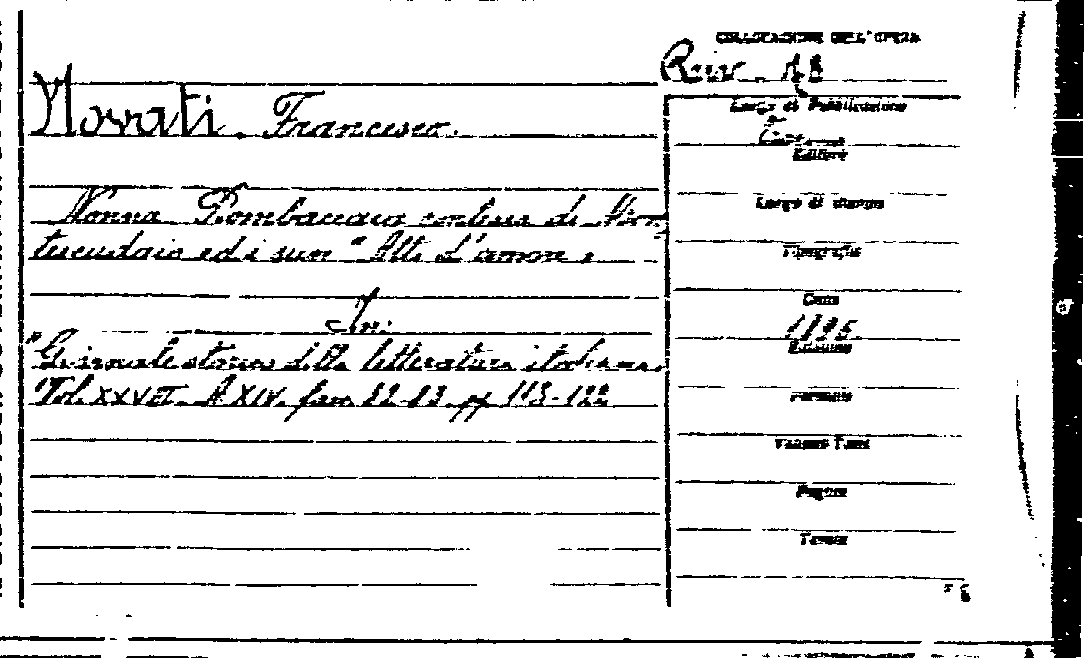 COLLOCAZIONE DELL'OPERA
Riv. 18
Novati. Francesco.
Luogo di Pubblicazione
Editore
Nonna Bombaccaia contessa di Mon
tescudaio ed i suoi "Atti d'amore"
Luogo di stampa
Tipografia
In:
Data
"Giornale storico della letteratura italiana"
Vol. XXVII. A. XIV. fasc. 82-83. pp 113-122
Edizione
Formato
Volumi Tomi
Pagine
Tavole